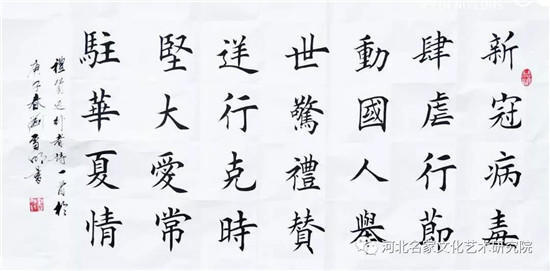 新冠病毒
肆虐行節
動國人舉
世驚禮贊
逆行克時
堅大愛常
駐華夏情
禮贊逆行者詩一首於
庚子春
河北名家文化艺术研究院